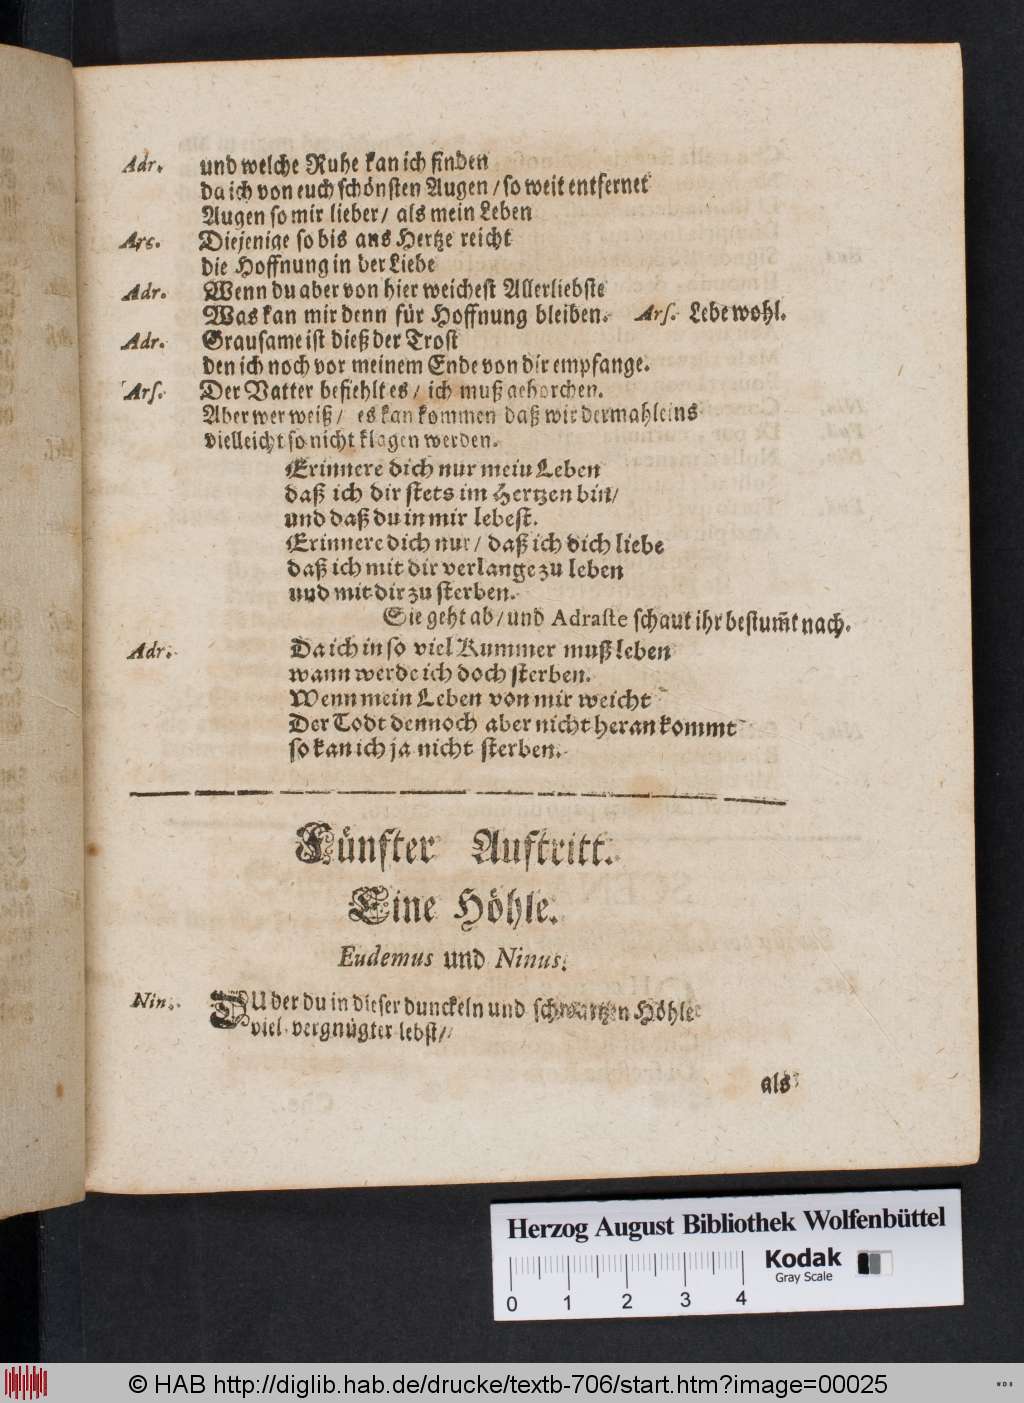 Adr. und welche Ruhe kan ich finden
da ich von euch schönsten Augen / so weit entfernet
Augen so mir lieber / als mein Leben
Ars. Diejenige so bis ans Hertze reicht
die Hoffnung in der Liebe
Adr. Wenn du aber von hier weichest Allerliebste
Was kan mir denn für Hoffnung bleiben. Ars. Lebe wohl.
Adr. Grausame ist dieß der Trost
den ich noch vor meinem Ende von dir empfange.
Ars. Der Vatter befiehlt es / ich muß gehorchen.
Aber wer weiß / es kan kommen daß wir dermahleins
vielleicht so nicht klagen werden.
Erinnere dich nur mein Leben
daß ich dir stets im Hertzen bin /
und daß du in mir lebest.
Erinnere dich nur / daß ich dich liebe
daß ich mit dir verlange zu leben
und mit dir zu sterben.
Sie geht ab / und Adraste schaut ihr bestum̃t nach.
Adr. Da ich in so viel Kummer muß leben
wann werde ich doch sterben.
Wenn mein Leben von mir weicht
Der Todt dennoch aber nicht heran kommt
so kan ich ja nicht sterben.
Fünfter Auftritt.
Eine Höhle.
Eudemus und Ninus.
Nin. DU der du in dieser dunckeln und schwartzen Höhle
viel vergnügter lebst /
als
Herzog August Bibliothek Wolfenbüttel
Kodak
Gray Scale
0 1 2 3 4
© HAB http://diglib.hab.de/drucke/textb-706/start.htm?image=00025